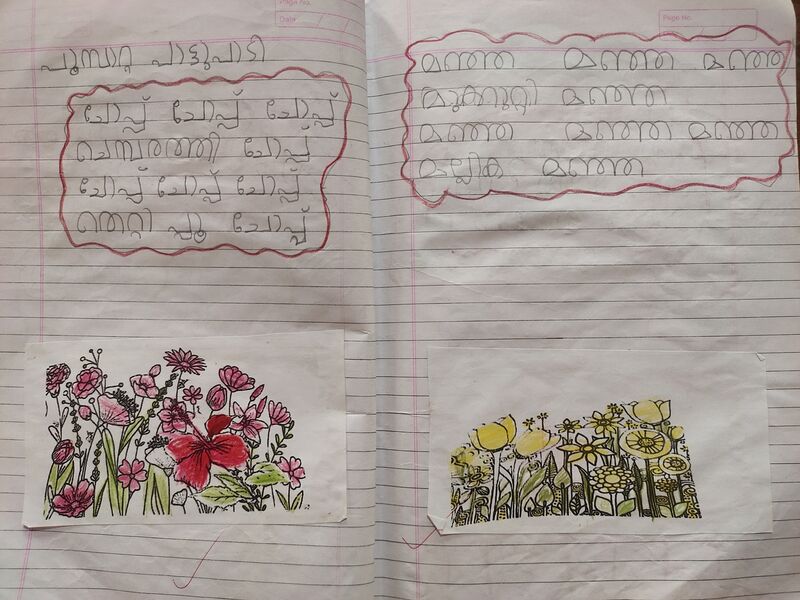 Page No.
Date
പൂമ്പാറ്റ പാട്ടുപാടി
ചോപ്പ് ചോപ്പ് ചോപ്പ്
ചെമ്പരത്തി ചോപ്പ്
ചോപ്പ് ചോപ്പ് ചോപ്പ്
തെറ്റി പ്പൂ ചോപ്പ്
Page No.
മഞ്ഞ മഞ്ഞ മഞ്ഞ
മുക്കുറ്റി മഞ്ഞ
മഞ്ഞ മഞ്ഞ മഞ്ഞ
മല്ലിക മഞ്ഞ